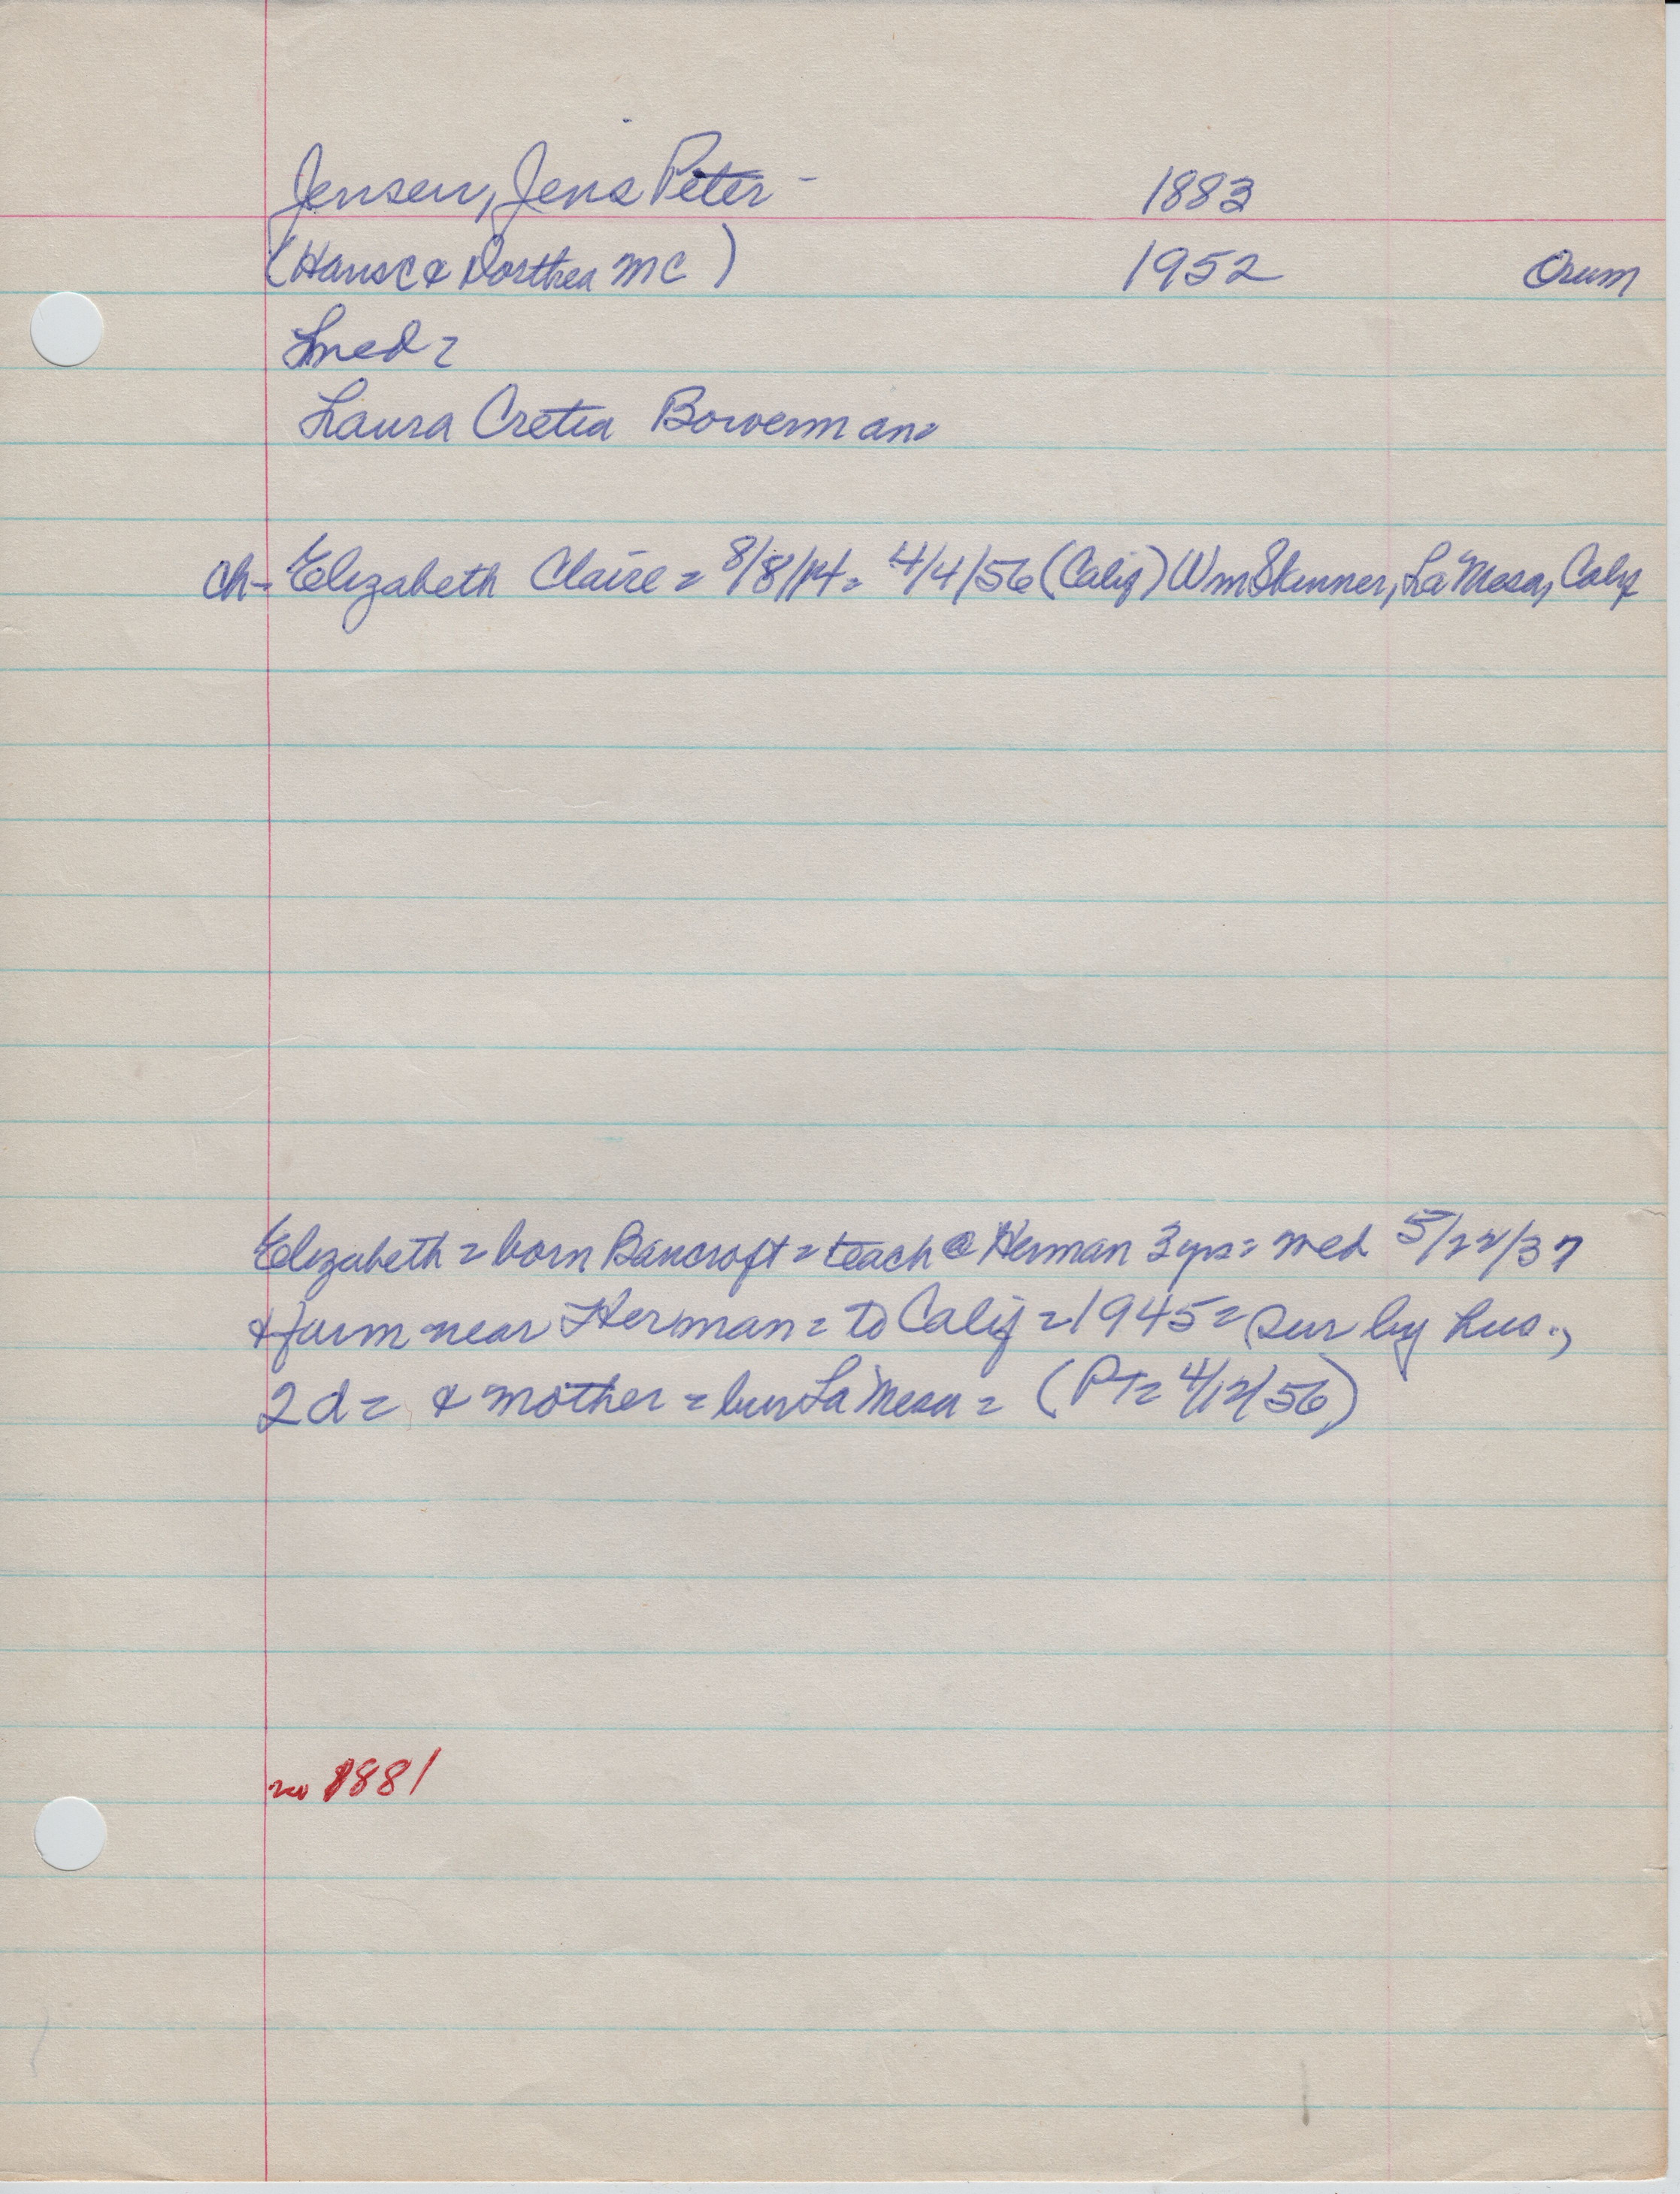 Jensen, Jens Peter - 1883
(Hans C & Dorthea MC) 1952 Orum
med =
Laura Cretia Bowerman=
ch- Elizabeth Claire = 8/8/14 = 4/4/56 (Calif) Wm Skinner, La Mesa, Calif
Elizabeth = born Bancroft = teach @ Herman 3 yrs = med 5/22/37
& farm near Herman = to Calif = 1945 = sur by hus.,
2 d = & mother = bur La Mesa = (PT= 4/12/56)
no 1881